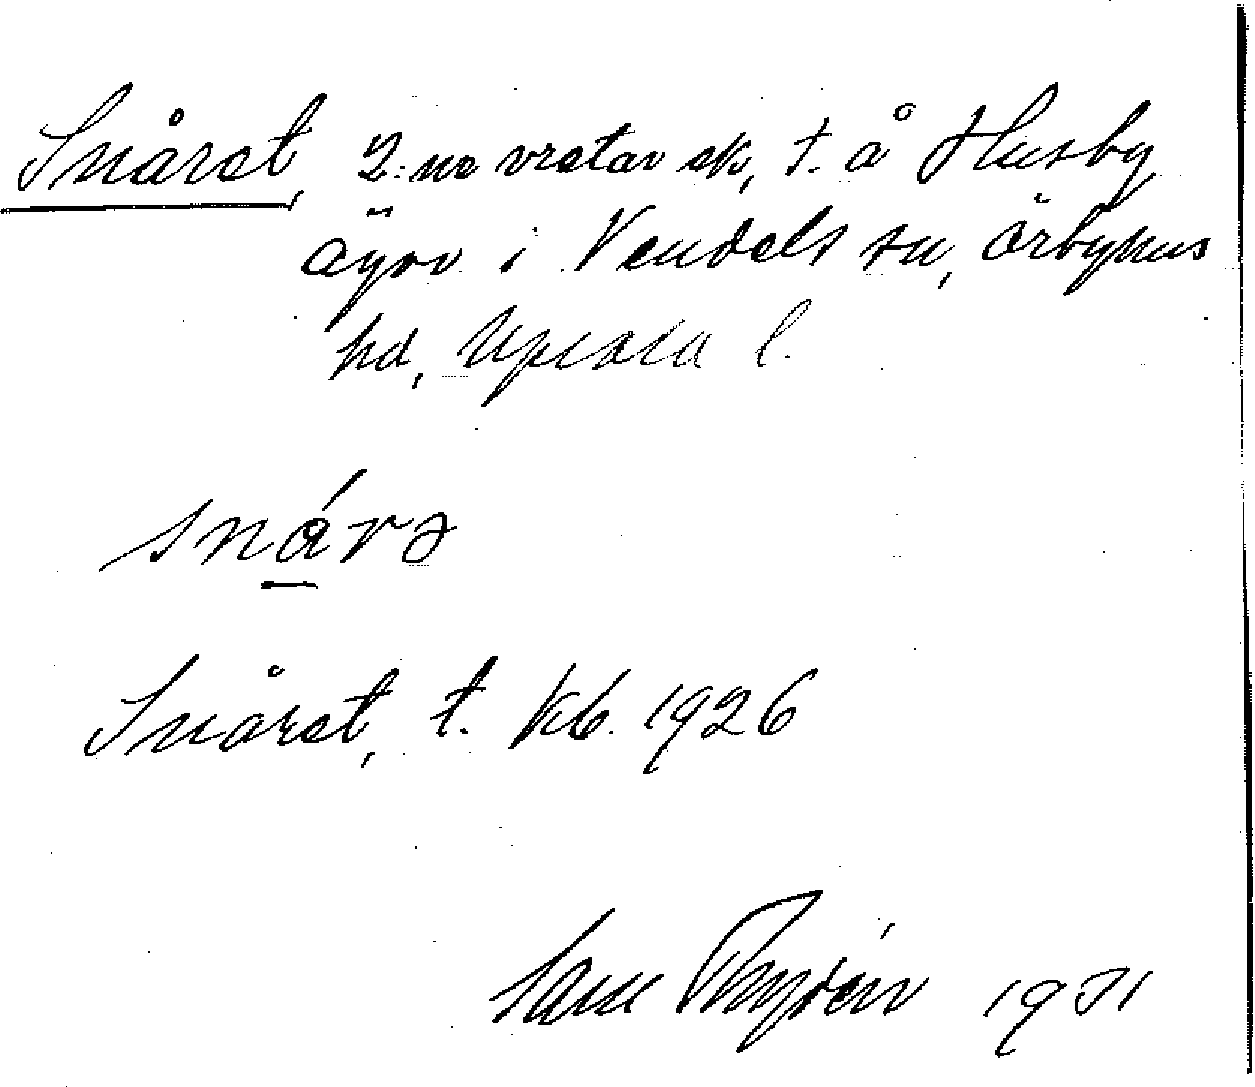 Snåret, 2:ne vretar sk, t. å Husby
ägor i Vendels sn, Örbyhus
hd, Upsala l.
snárə
Snåret, t. Kb. 1926
Sam Rydén 1931